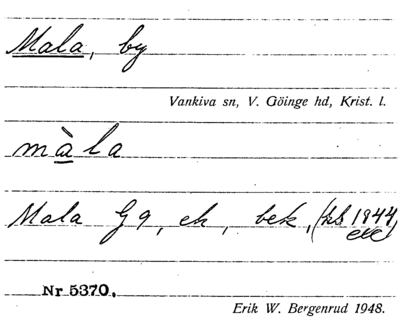 Mala, by
Vankiva sn, V. Göinge hd, Krist. l.
màla
Mala G9, ek, bek, (hs 1944
etc)
Nr 5370.
Erik W. Bergenrud 1948.